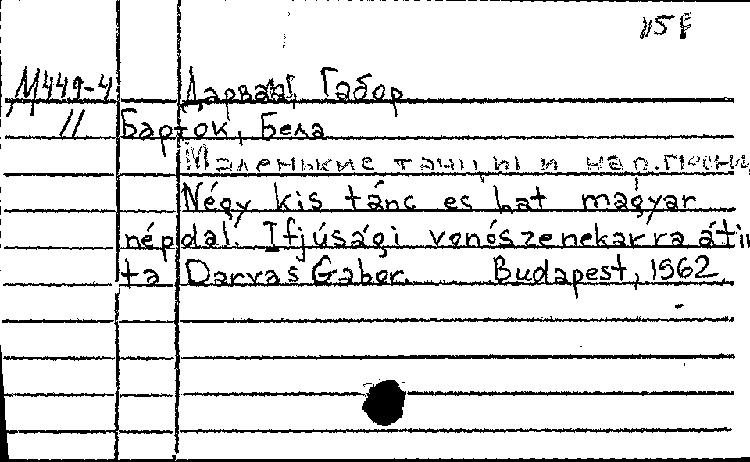 115
М449-4 Дарваш, Габор
11 Барток, Бела
Маленькие танцы и нар.песни
Négy kis tánc es hat magyar
népdal. Ifjúsági vonószenekarra átir
ta Darvas Gabor. Budapest, 1962.